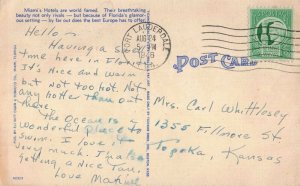 Miami's Hotels are world famed. Their breathtaking
beauty not only rivals — but because of Florida's glamor-
ous setting — by far out does the best Europe has to offer.
Hello —
Having a
time here in Florida.
It's Nice and warm
but not too hot. Not
any hotter than out
there.
The Ocean is a
wonderful place to
swim. I love it
very much. I'm also
getting a Nice Tan.
Love
LAUDERDALE
AUG 24
PM
POST CARD
Mrs. Carl Whittlesey
1355 Fillmore St
Topeka, Kansas